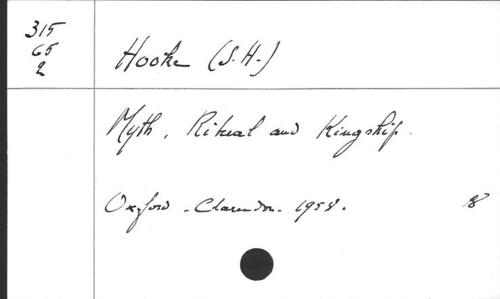 315
65
2
Hooke (S.H.)
Myth, Ritual and Kingship.
Oxford - Clarendon - 1958.
8